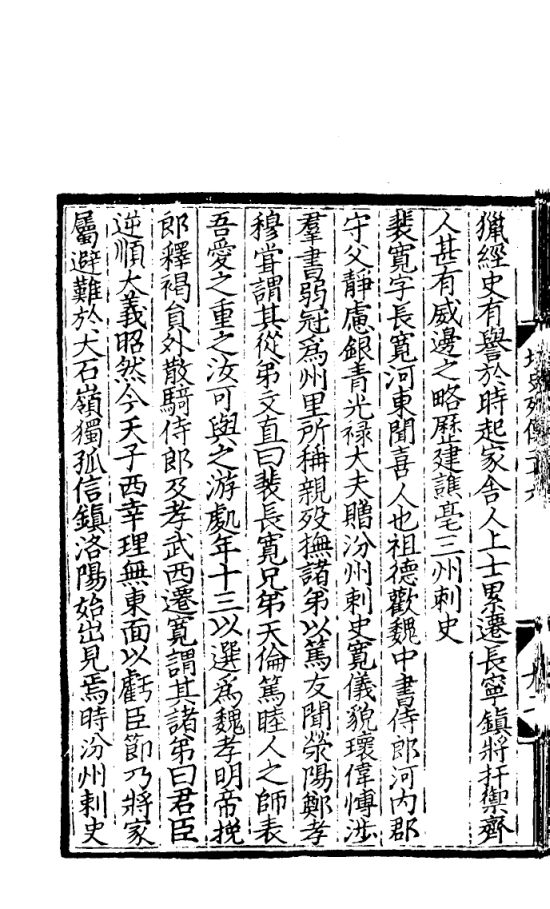 獵經史有譽於時起家舍人上士累遷長寧鎮將扞禦齊
人甚有威邊之略歷建譙亳三州刺史
裴寬字長寬河東聞喜人也祖德歡魏中書侍郎河内郡
守父靜慮銀青光禄大夫贈汾州刺史寬儀貌瓌偉博涉
羣書弱冠爲州里所稱親歿撫諸弟以篤友聞滎陽鄭孝
穆甞謂其從弟文直曰裴長寬兄弟天倫篤睦人之師表
吾愛之重之汝可與之游處年十三以選爲魏孝明帝挽
郎釋褐員外散騎侍郎及孝武西遷寬謂其諸弟曰君臣
逆順大義昭然今天子西幸理無東面以虧臣節乃將家
屬避難於大石嶺獨孤信鎮洛陽始出見焉時汾州刺史